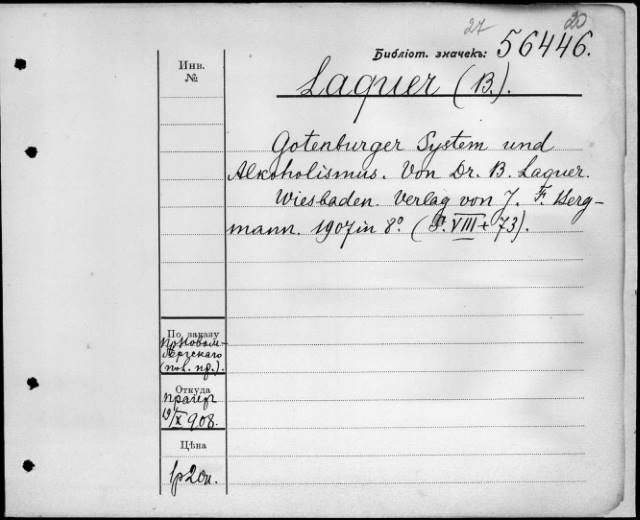 27
20
Библіот. значекъ: 56446.
Инв.
№
Laquer (B.).
Gotenburger System und
Alkoholismus. Von Dr. B. Laquer.
Wiesbaden. Verlag von J. F. Berg-
mann. 1907 in 8º (S. VIII + 73).
По заказу
(пов. пр.).
Откуда
Прагеръ
19/X 908.
Цѣна
1р20к.